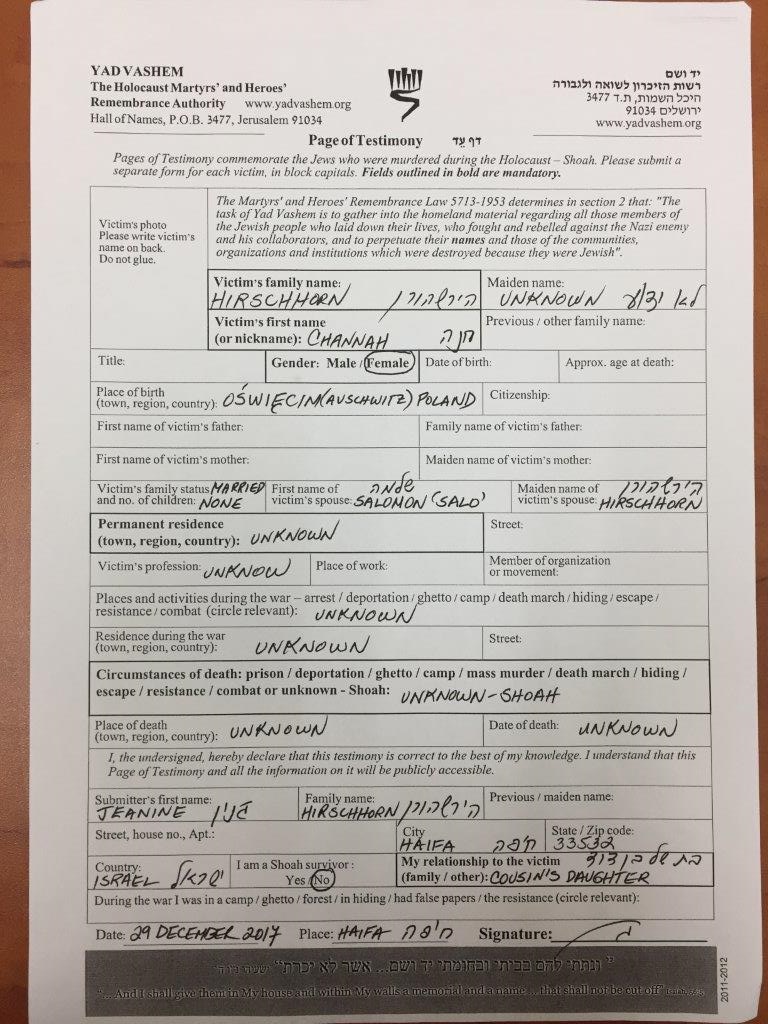 YAD VASHEM
The Holocaust Martyrs' and Heroes'
Remembrance Authority www.yadvashem.org
Hall of Names, P.O.B. 3477, Jerusalem 91034
יד ושם
רשות הזיכרון לשואה ולגבורה
היכל השמות, ת.ד 3477
ירושלים 91034
www.yadvashem.org
Page of Testimony דף עֵד
Pages of Testimony commemorate the Jews who were murdered during the Holocaust – Shoah. Please submit a
separate form for each victim, in block capitals. Fields outlined in bold are mandatory.
Victim's photo
Please write victim's
name on back.
Do not glue.
The Martyrs' and Heroes' Remembrance Law 5713-1953 determines in section 2 that: "The
task of Yad Vashem is to gather into the homeland material regarding all those members of
the Jewish people who laid down their lives, who fought and rebelled against the Nazi enemy
and his collaborators, and to perpetuate their names and those of the communities,
organizations and institutions which were destroyed because they were Jewish".
Victim's family name:
HIRSCHHORN הירשהורן
Maiden name:
UNKNOWN לא ידוע
Victim's first name
(or nickname): CHANNAH חנה
Previous / other family name:
Title:
Gender: Male / Female
Date of birth:
Approx. age at death:
Place of birth
(town, region, country): OŚWIĘCIM (AUSCHWITZ) POLAND
Citizenship:
First name of victim's father:
Family name of victim's father:
First name of victim's mother:
Maiden name of victim's mother:
Victim's family status MARRIED
and no. of children: NONE
First name of שלמה
victim's spouse: SALOMON 'SALO'
Maiden name of הירשהורן
victim's spouse: HIRSCHHORN
Permanent residence
(town, region, country): UNKNOWN
Street:
Victim's profession: UNKNOW
Place of work:
Member of organization
or movement:
Places and activities during the war – arrest / deportation / ghetto / camp / death march / hiding / escape /
resistance / combat (circle relevant): UNKNOWN
Residence during the war
(town, region, country): UNKNOWN
Street:
Circumstances of death: prison / deportation / ghetto / camp / mass murder / death march / hiding /
escape / resistance / combat or unknown - Shoah: UNKNOWN-SHOAH
Place of death
(town, region, country): UNKNOWN
Date of death: UNKNOWN
I, the undersigned, hereby declare that this testimony is correct to the best of my knowledge. I understand that this
Page of Testimony and all the information on it will be publicly accessible.
Submitter's first name:
JEANINE ג'נין
Family name:
HIRSCHHORN הירשהורן
Previous / maiden name:
Street, house no., Apt.:
City
HAIFA חיפה
State / Zip code:
33532
Country:
ISRAEL ישראל
I am a Shoah survivor:
Yes / No
My relationship to the victim בת של בן דוד
(family / other): COUSIN'S DAUGHTER
During the war I was in a camp / ghetto / forest / in hiding / had false papers / the resistance (circle relevant):
Date: 29 DECEMBER 2017 Place: HAIFA חיפה Signature:
"ונתתי להם בביתי ובחומתי יד ושם... אשר לא יכרת" ישעיהו נ"ו ה'
"...And I shall give them in My house and within My walls a memorial and a name ...that shall not be cut off" Isaiah, 56:5
2011-2012